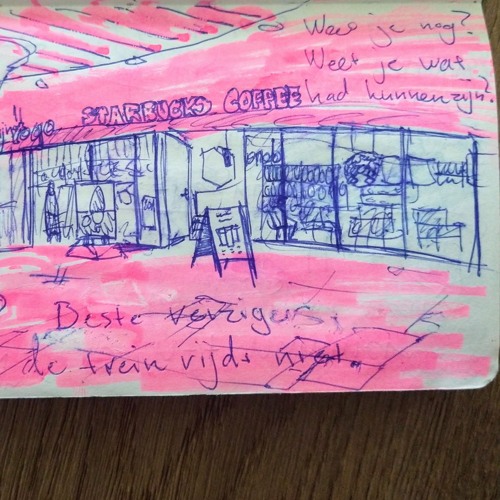 Weet je nog?
Weet je wat
had kunnen zijn?
STARBUCKS COFFEE
Beste reizigers,
de trein rijdt niet.